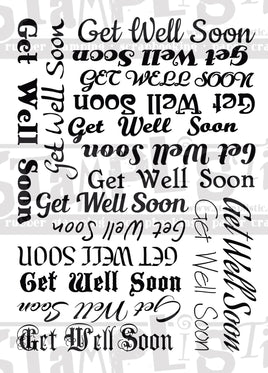 Get Well Soon
Get Well Soon
Get Well Soon
Get Well Soon
GET WELL SOON
Get Well Soon
Get Well Soon
Get Well Soon
Get Well Soon
Get Well Soon
Get Well Soon
Get Well Soon
Get Well Soon
GET WELL SOON
Get Well Soon
Get Well Soon
Get Well Soon